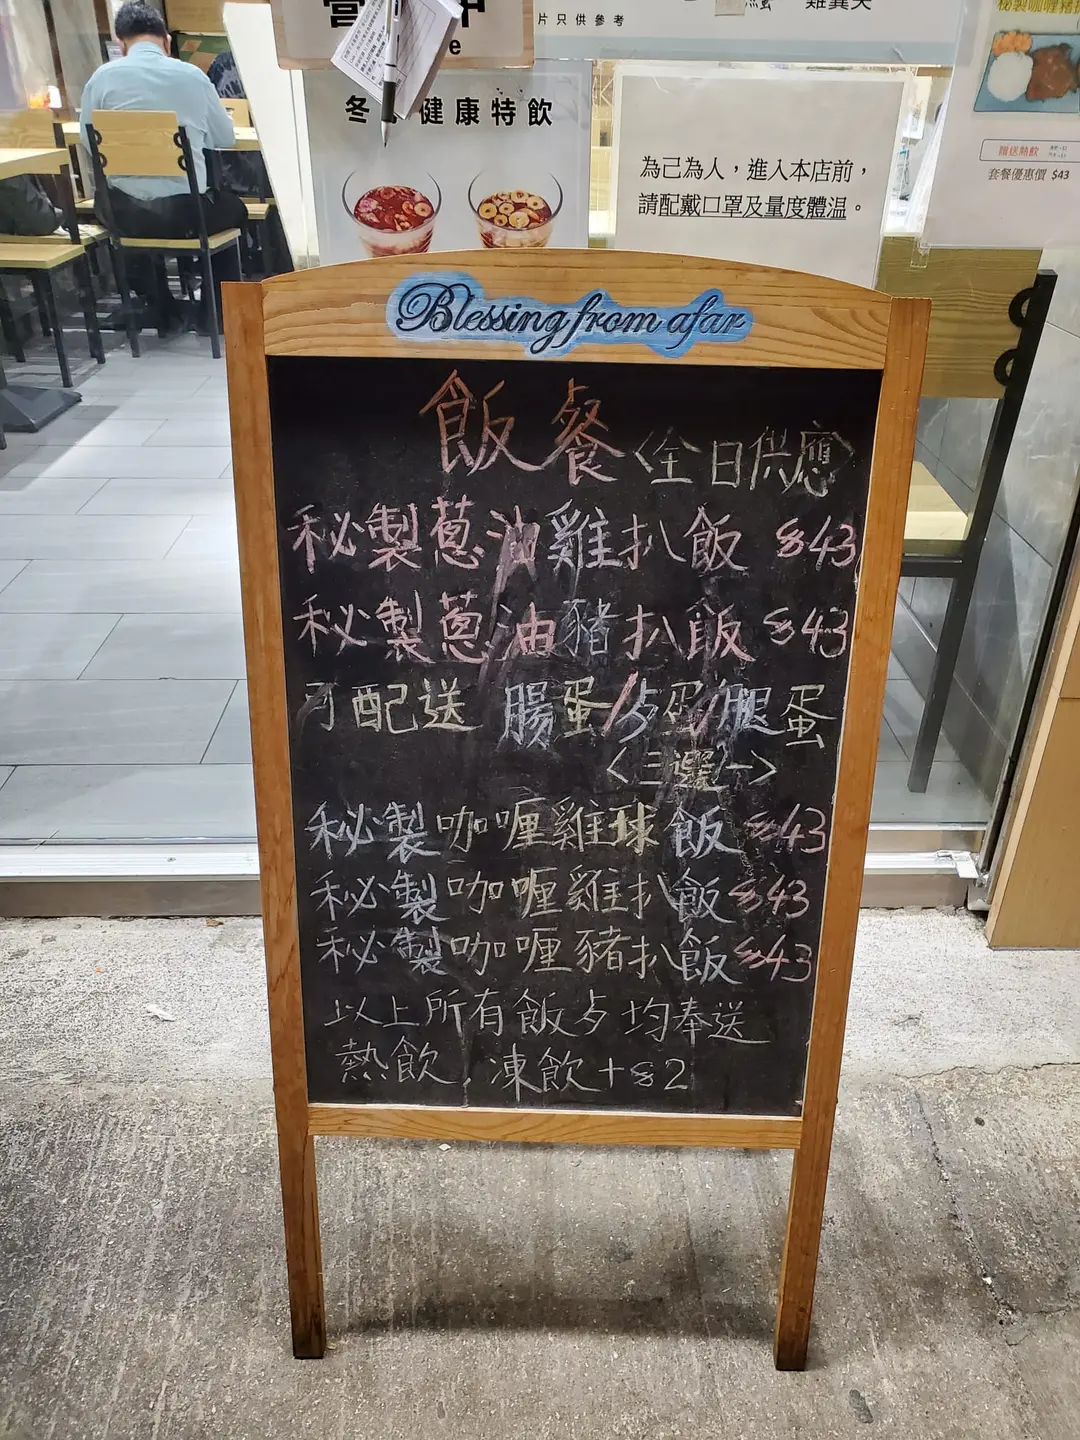 片只供參考
健康特飲
為己為人，進入本店前，
請配戴口罩及量度體温。
贈送熱飲
套餐優惠價 $43
Blessing from afar
飯餐<全日供應>
秘製蔥油雞扒飯 $43
秘製蔥油豬扒飯 $43
可配送 腸蛋/歺蛋/腿蛋
<三選一>
秘製咖喱雞球飯 $43
秘製咖喱雞扒飯 $43
秘製咖喱豬扒飯 $43
以上所有飯歺均奉送
熱飲, 凍飲+$2